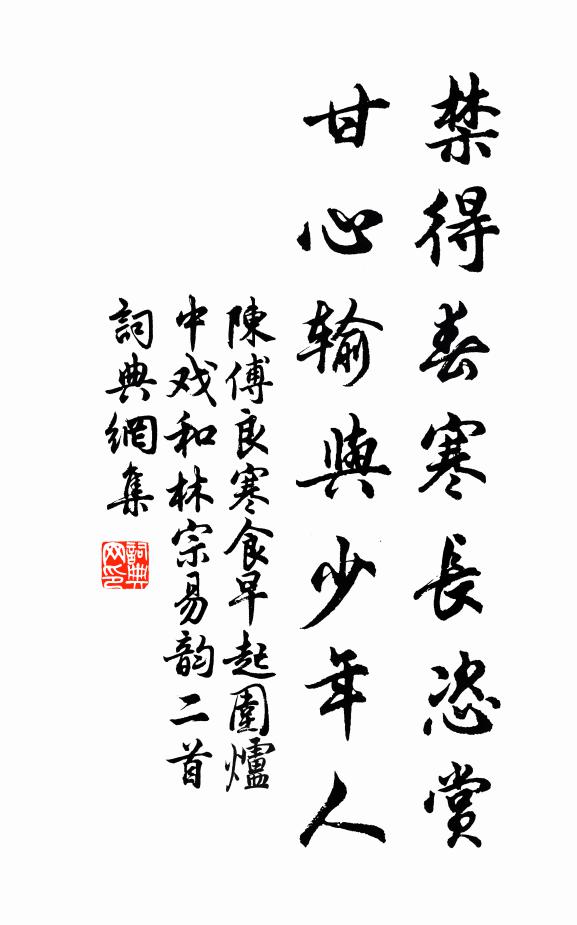 禁得春寒長恣賞
甘心输與少年人
陳傅良寒食早起圍爐
中戏和林宗易韵二首
詞典網集
詞典网印